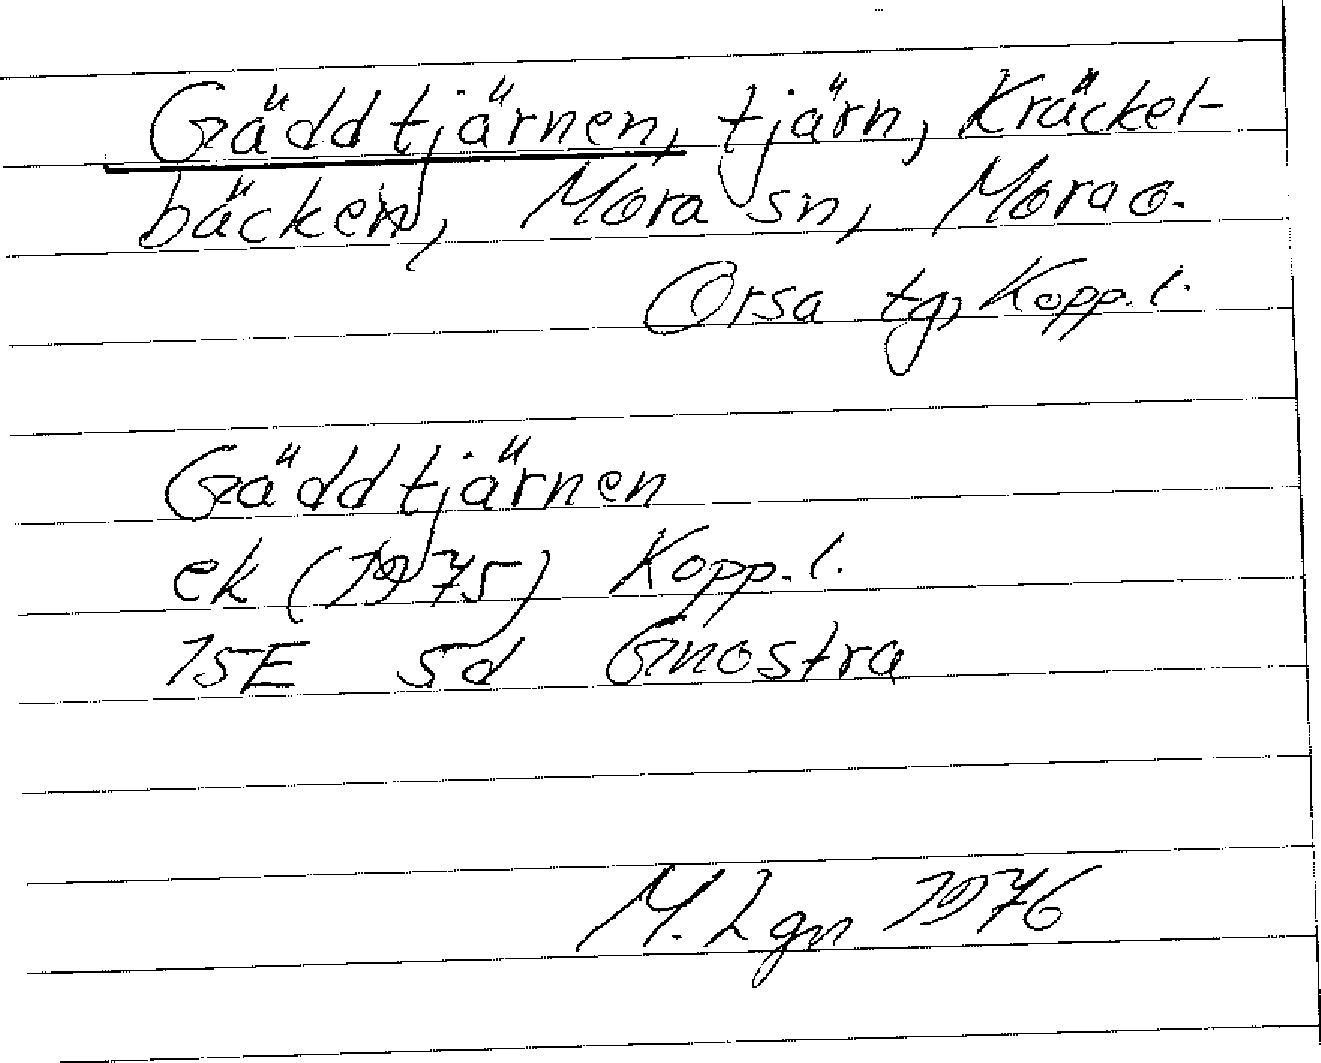 Gäddtjärnen, tjärn, Kräckel-
bäcken, Mora sn, Mora o.
Orsa tg, Kopp. l.
Gäddtjärnen
ek (1975) Kopp. l.
15E 5d Gnostra
M. Lgn 1976